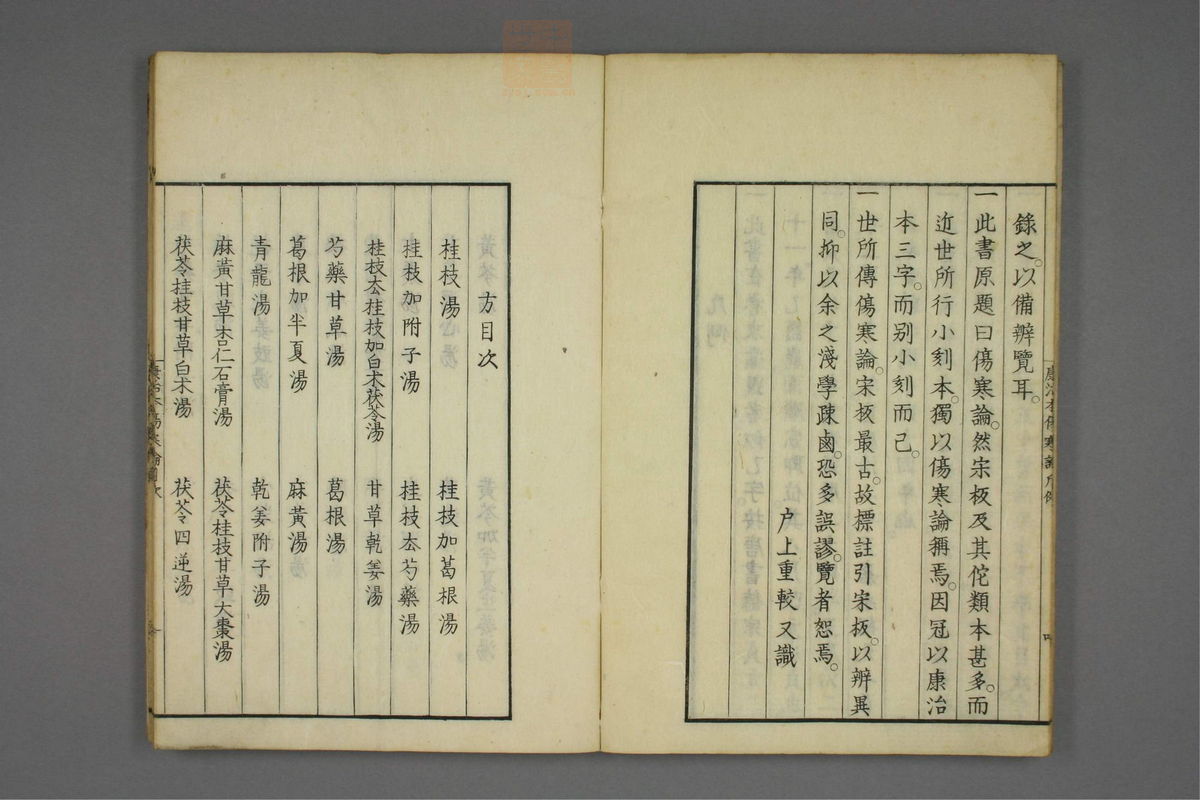 錄之。以備辨覽耳。
一此書原題曰傷寒論。然宋板及其佗類本甚多。而
近世所行小刻本。獨以傷寒論稱焉。因冠以康治
本三字。而別小刻而已。
一世所傳傷寒論。宋板最古。故標註引宋板。以辨異
同。抑以余之淺學疎鹵。恐多誤謬。覽者恕焉。
户上重較又識
方目次
桂枝湯
桂枝加葛根湯
桂枝加附子湯
桂枝去芍藥湯
桂枝去桂枝加白朮茯苓湯
甘草乾姜湯
芍藥甘草湯
葛根湯
葛根加半夏湯
麻黃湯
青龍湯
乾姜附子湯
麻黃甘草杏仁石膏湯
茯苓桂枝甘草大棗湯
茯苓桂枝甘草白朮湯
茯苓四逆湯